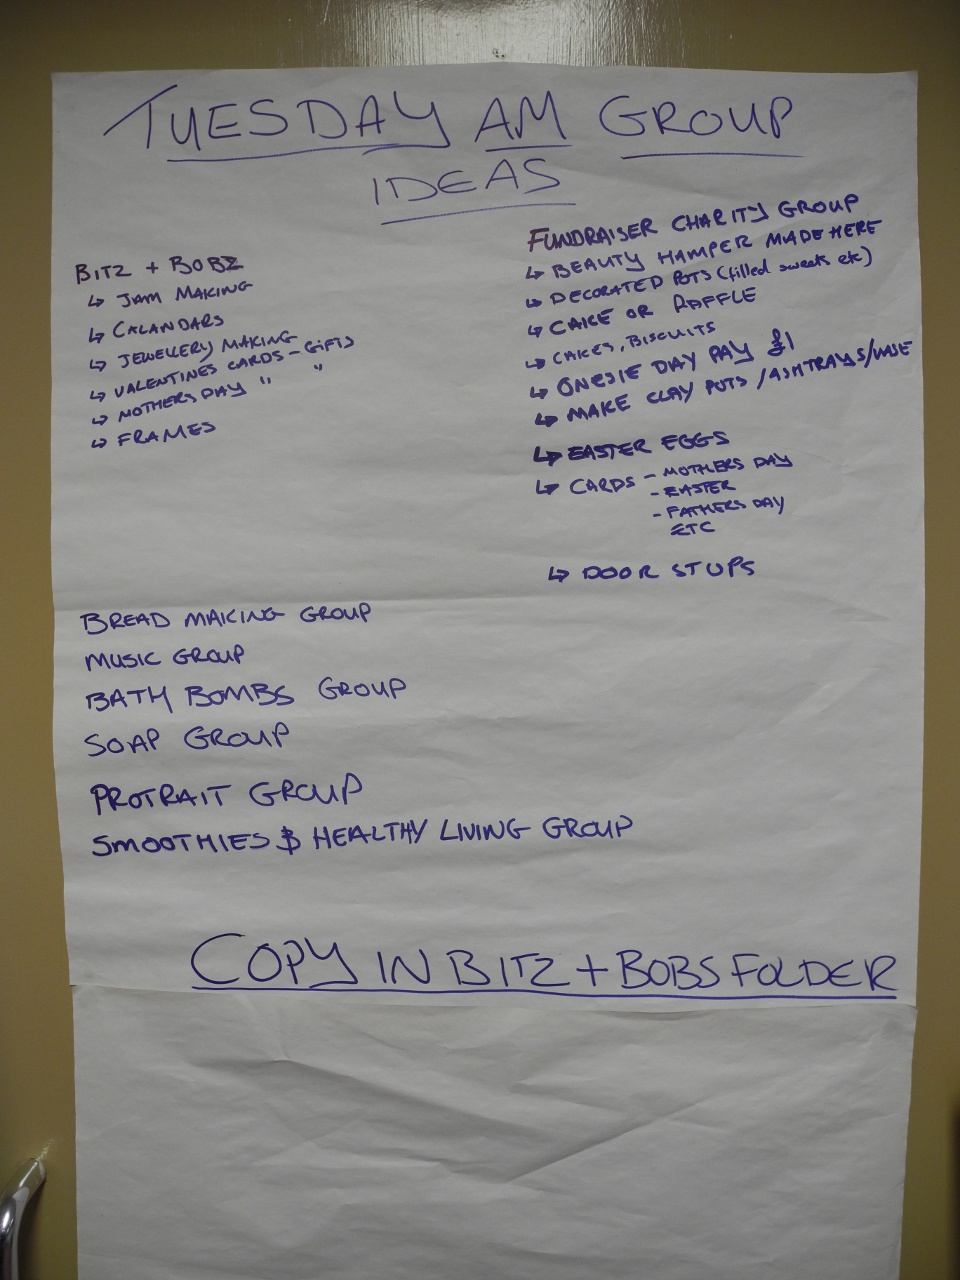 TUESDAY AM GROUP
IDEAS
BITZ + BOBZ
↳ JAM MAKING
↳ CALANDARS
↳ JEWELLERY MAKING
↳ VALENTINES CARDS - GIFTS
↳ MOTHERS DAY " "
↳ FRAMES
FUNDRAISER CHARITY GROUP
↳ BEAUTY HAMPER MADE HERE
↳ DECORATED POTS (filled sweets etc)
↳ CAKE OR RAFFLE
↳ CAKES, BISCUITS
↳ ONESIE DAY PAY £1
↳ MAKE CLAY POTS / ASHTRAYS/VASE
↳ EASTER EGGS
↳ CARDS - MOTHERS DAY
- EASTER
- FATHERS DAY
ETC
↳ DOOR STOPS
BREAD MAKING GROUP
MUSIC GROUP
BATH BOMBS GROUP
SOAP GROUP
PROTRAIT GROUP
SMOOTHIES & HEALTHY LIVING GROUP
COPY IN BITZ + BOBS FOLDER